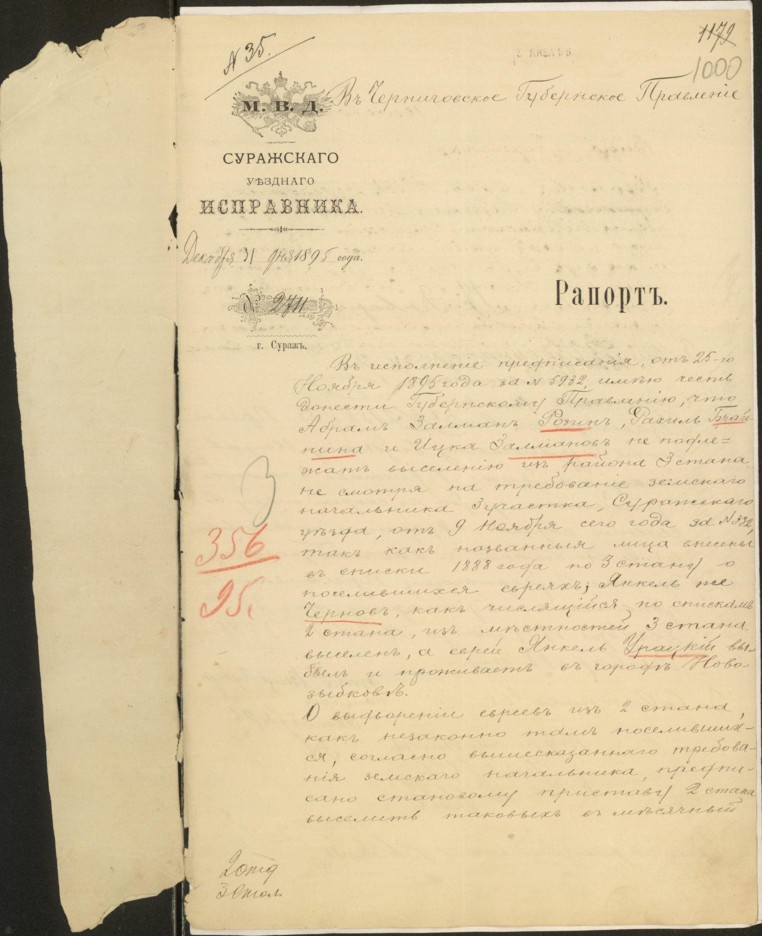 1179
1000
N 35.
М. В. Д.
Въ Черниговское Губернское Правленіе
СУРАЖСКАГО
УѢЗДНАГО
ИСПРАВНИКА.
Декабря 31 дня 1895 года.
№ 2711
г. Суражъ.
Рапортъ.
Въ исполненіе предписанія, отъ 25-го
Ноября 1895 года за N 5932, имѣю честь
донести Губернскому Правленію, что
Абрамъ Залманъ, Рахиль
и Ицка Залмановъ не подле-
жатъ выселенію изъ района 3 стана
не смотря на требованіе земскаго
начальника 3 участка, Суражскаго
уѣзда, отъ 9 Ноября сего года за N
такъ какъ названныя лица внесены
въ списки 1888 года по 3 стану о
поселившихся евреяхъ; Янкель же
Черновъ, какъ числящійся по спискамъ
2 стана, изъ мѣстностей 3 стана
выселенъ, а еврей Янкель Урицкій вы-
былъ и проживаетъ въ городѣ Ново-
зыбковѣ.
О выдвореніи евреевъ изъ 2 стана,
какъ незаконно тамъ поселивших-
ся, согласно вышесказаннаго требова-
нія земскаго начальника, предпи-
сано становому приставу 2 стана
выселить таковыхъ въ мѣсячный
3
356
95.
2 отд
3 стол